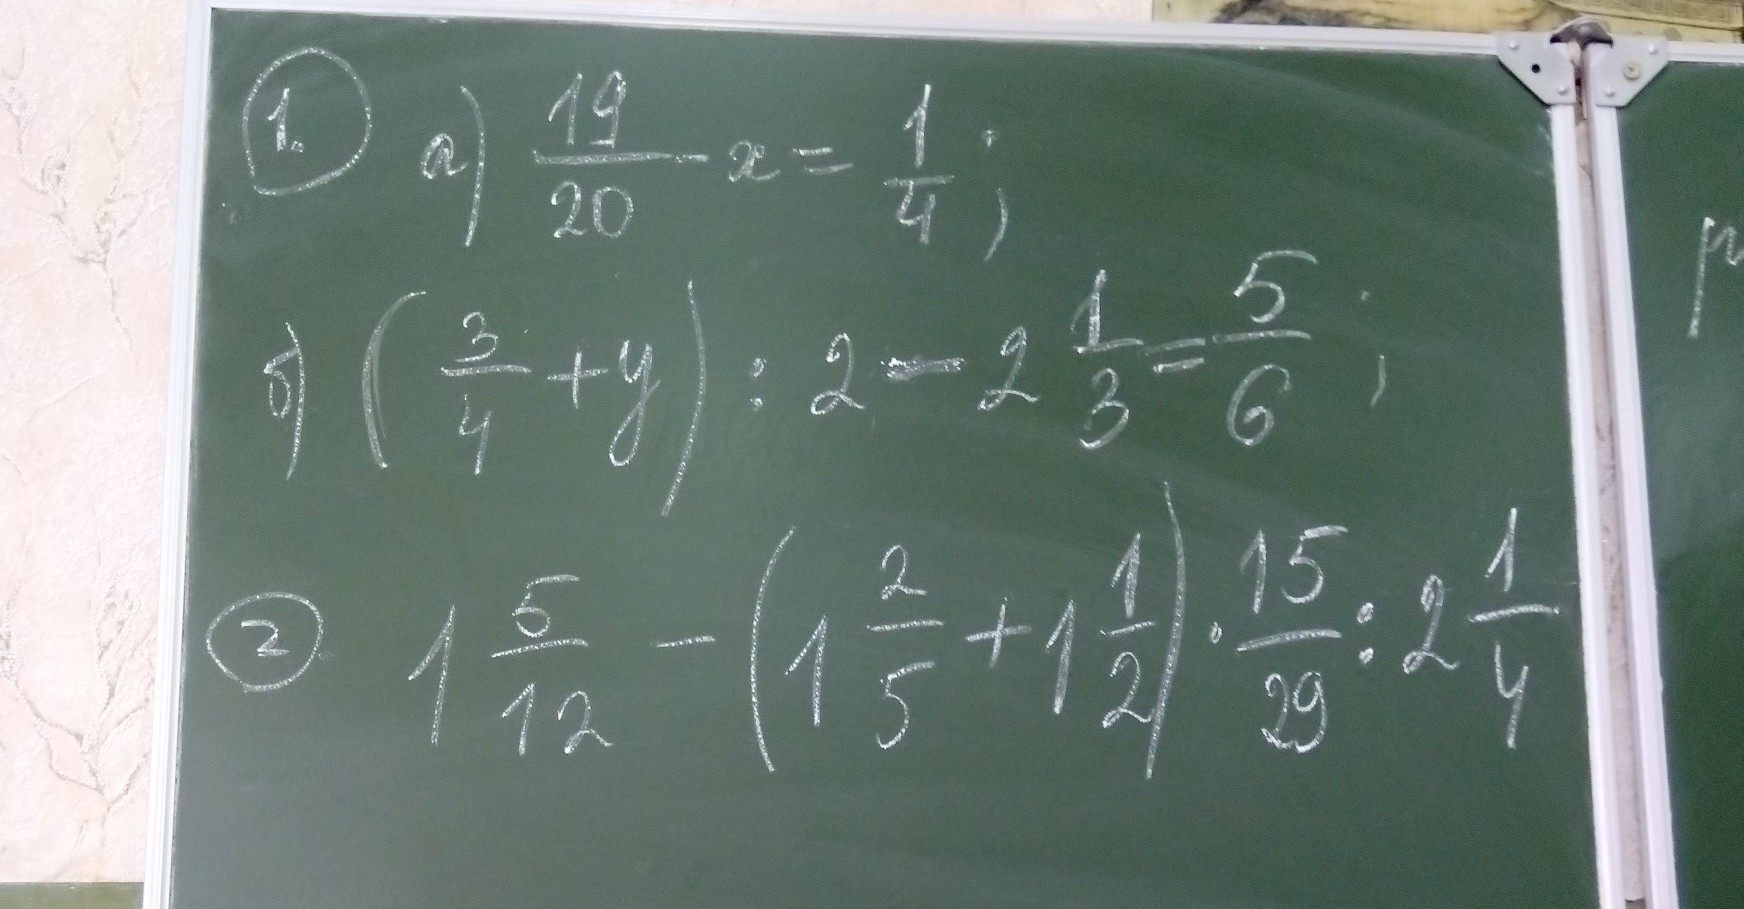 1. а) 19/20 - x = 1/4;
б) (3/4 + y) : 2 - 2 1/3 = 5/6;
2 1 5/12 - (1 2/5 + 1 1/2) · 15/29 : 2 1/4